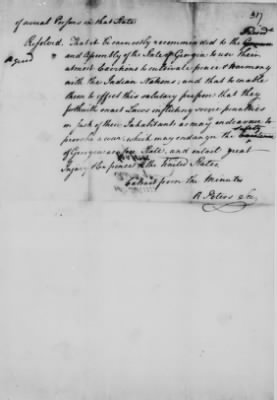 317
of annual Persons in that State
Presidt
Resolved. That it be earnestly recommended to the
Agreed
and Assembly of the State of Georgia to use their
utmost Exertions to cultivate peace & Harmony
with the Indian Nations; and that to enable
them to effect this salutary purpose that they
forthwith enact Laws inflicting severe penalties
on such of their Inhabitants as may endeavour to
provoke a war; which may endanger the safety
of Georgia as a free State, and entail great
Injury & Expence to the United States.
Extract from the Minutes
R. Peters Secy